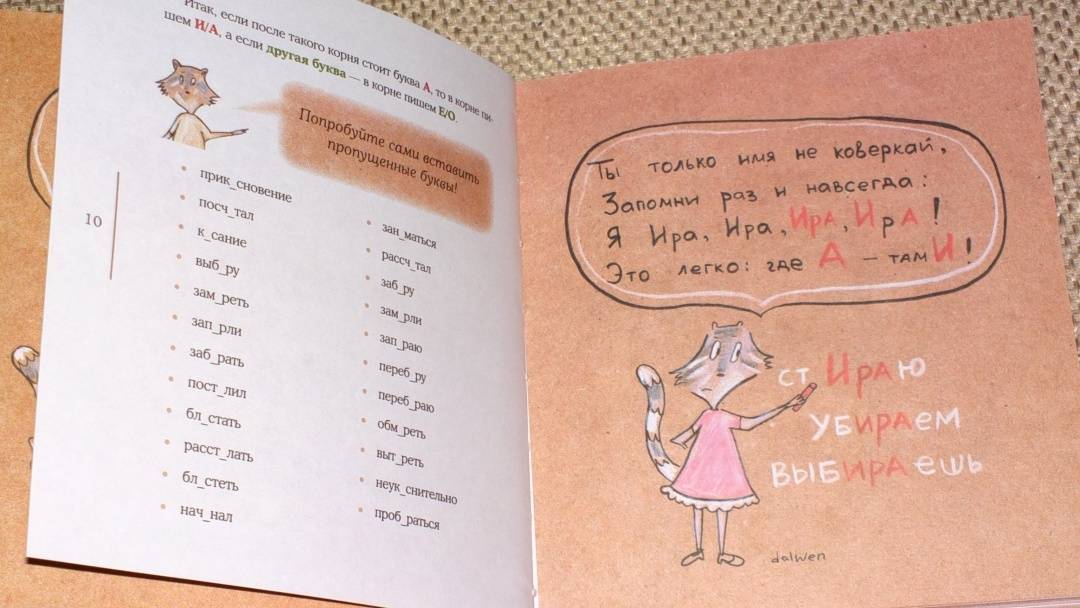 Итак, если после такого корня стоит буква А, то в корне пи-
шем И/А, а если другая буква — в корне пишем Е/О.
Попробуйте сами вставить
пропущенные буквы!
10
прик_сновение
посч_тал
к_сание
выб_ру
зам_реть
зап_рли
заб_рать
пост_лил
бл_стать
расст_лать
бл_стеть
нач_нал
зан_маться
рассч_тал
заб_ру
зам_рли
зап_раю
переб_ру
переб_раю
обм_реть
выт_реть
неук_снительно
проб_раться
Ты только имя не коверкай,
Запомни раз и навсегда:
Я Ира, Ира, Ира, ИрА!
Это легко: где А – там И!
стИРАю
убИРАем
выбИРАешь
dalwen